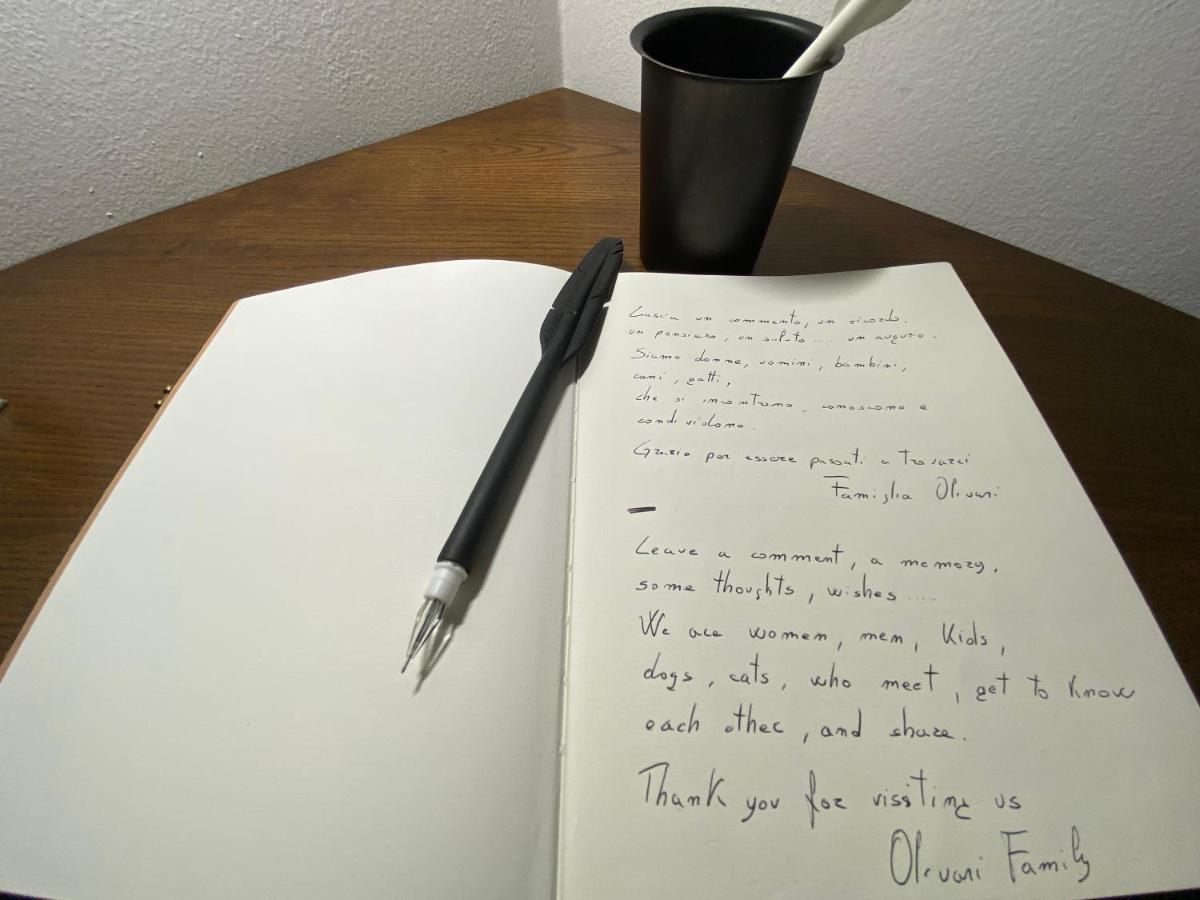 Lascia un commento, un ricordo,
un pensiero, un saluto .... un augurio.
Siamo donne, uomini, bambini,
cani, gatti,
che si incontrano, conoscono e
condividono.
Grazie per essere passati a trovarci
Famiglia Olivari
—
Leave a comment, a memory,
some thoughts, wishes ....
We are women, men, Kids,
dogs, cats, who meet, get to know
each other, and share.
Thank you for visiting us
Olivari Family